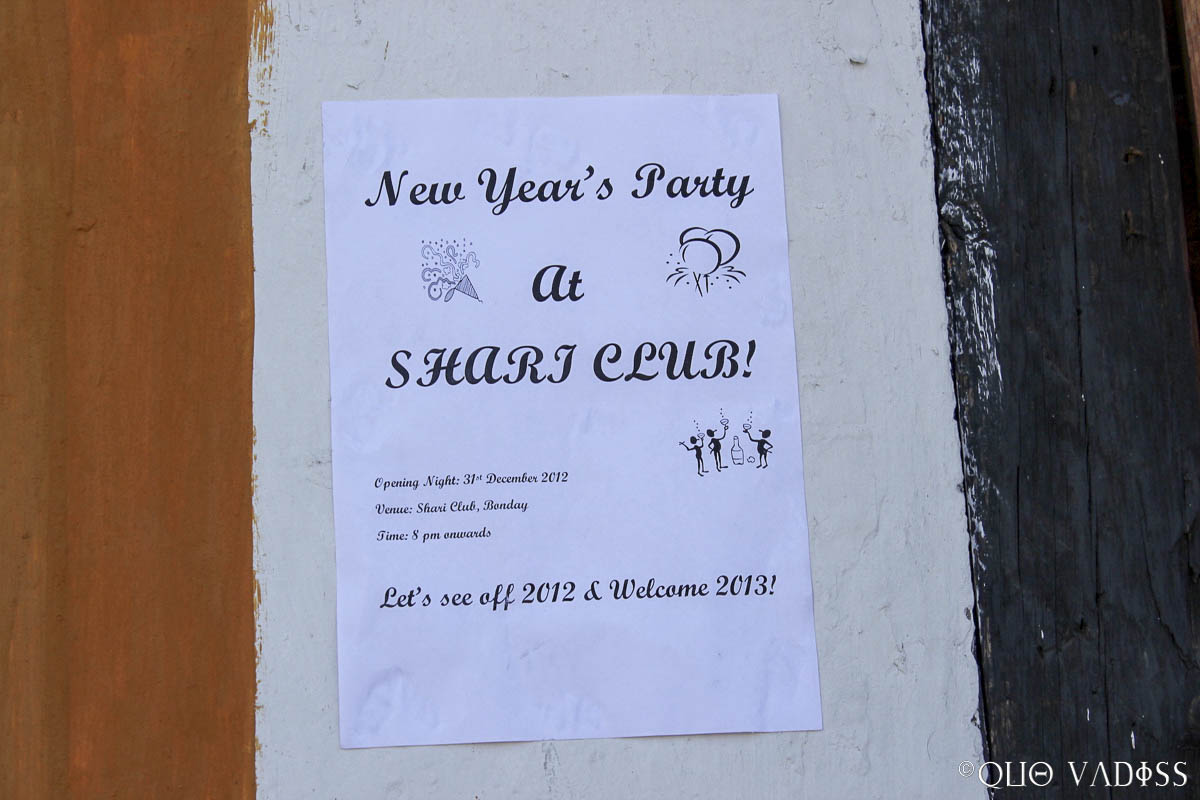 New Year's Party
At
SHARI CLUB!
Opening Night: 31st December 2012
Venue: Shari Club, Bonday
Time: 8 pm onwards
Let's see off 2012 & Welcome 2013!
©QUO VADISS